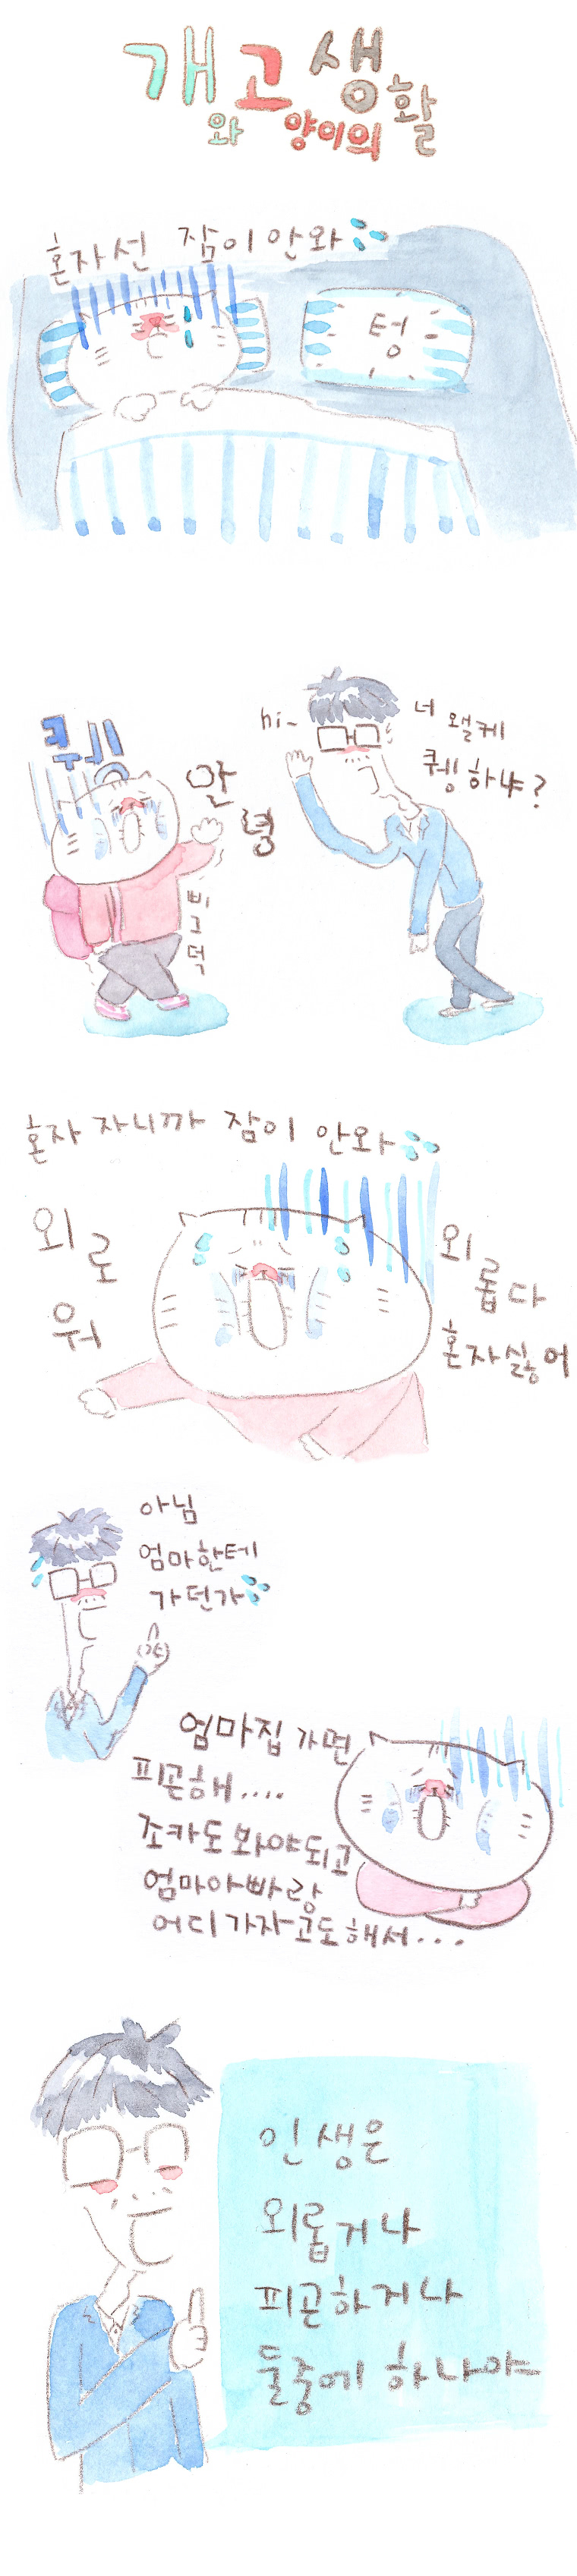 개고생
와 양이의 활
혼자선 잠이 안와
텅
퀭
안
녕
삐그덕
hi~
너 왤케
퀭하냐?
혼자 자니까 잠이 안와
외로
워
외롭다
혼자싫어
아님
엄마한테
가던가
엄마집 가면
피곤해....
조카도 봐야되고
엄마아빠랑
어디가자고도해서...
인생은
외롭거나
피곤하거나
둘중에 하나야